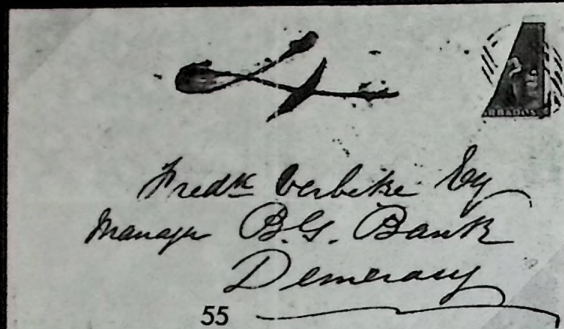 BARBADOS
Fredk Verbeke Esq
Manager B.G. Bank
Demerary
55